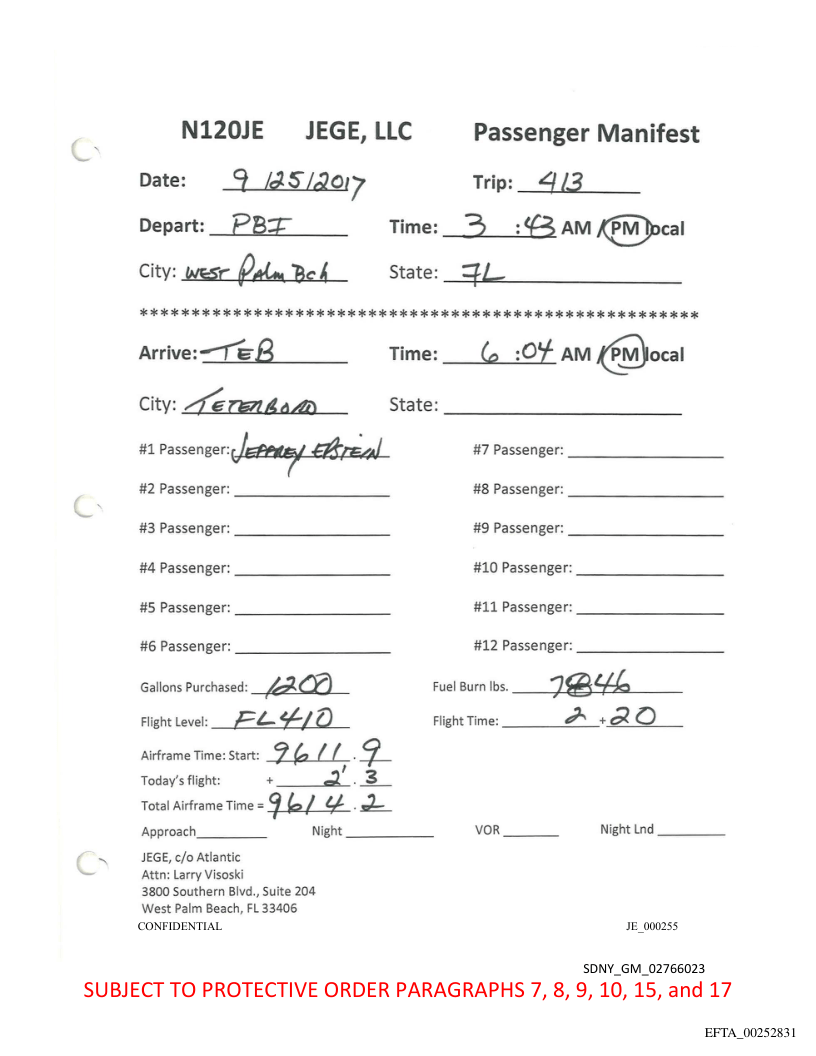 N120JE JEGE, LLC Passenger Manifest
Date: 9/25/2017 Trip: 413
Depart: PBI Time: 3:43 AM / PM local
City: WEST PALM BCH State: FL
******************************************************
Arrive: TEB Time: 6:04 AM / PM local
City: State:
#1 Passenger: JEFFREY EPSTEIN #7 Passenger:
#2 Passenger: #8 Passenger:
#3 Passenger: #9 Passenger:
#4 Passenger: #10 Passenger:
#5 Passenger: #11 Passenger:
#6 Passenger: #12 Passenger:
Gallons Purchased: 1200 Fuel Burn lbs.
Flight Level: FL410 Flight Time: 2 + 20
Airframe Time: Start: 9611.9
Today's flight: + 2.3
Total Airframe Time = 9614.2
Approach Night VOR Night Lnd
JEGE, c/o Atlantic
Attn: Larry Visoski
3800 Southern Blvd., Suite 204
West Palm Beach, FL 33406
CONFIDENTIAL JE_000255
SDNY_GM_02766023
SUBJECT TO PROTECTIVE ORDER PARAGRAPHS 7, 8, 9, 10, 15, and 17
EFTA_00252831